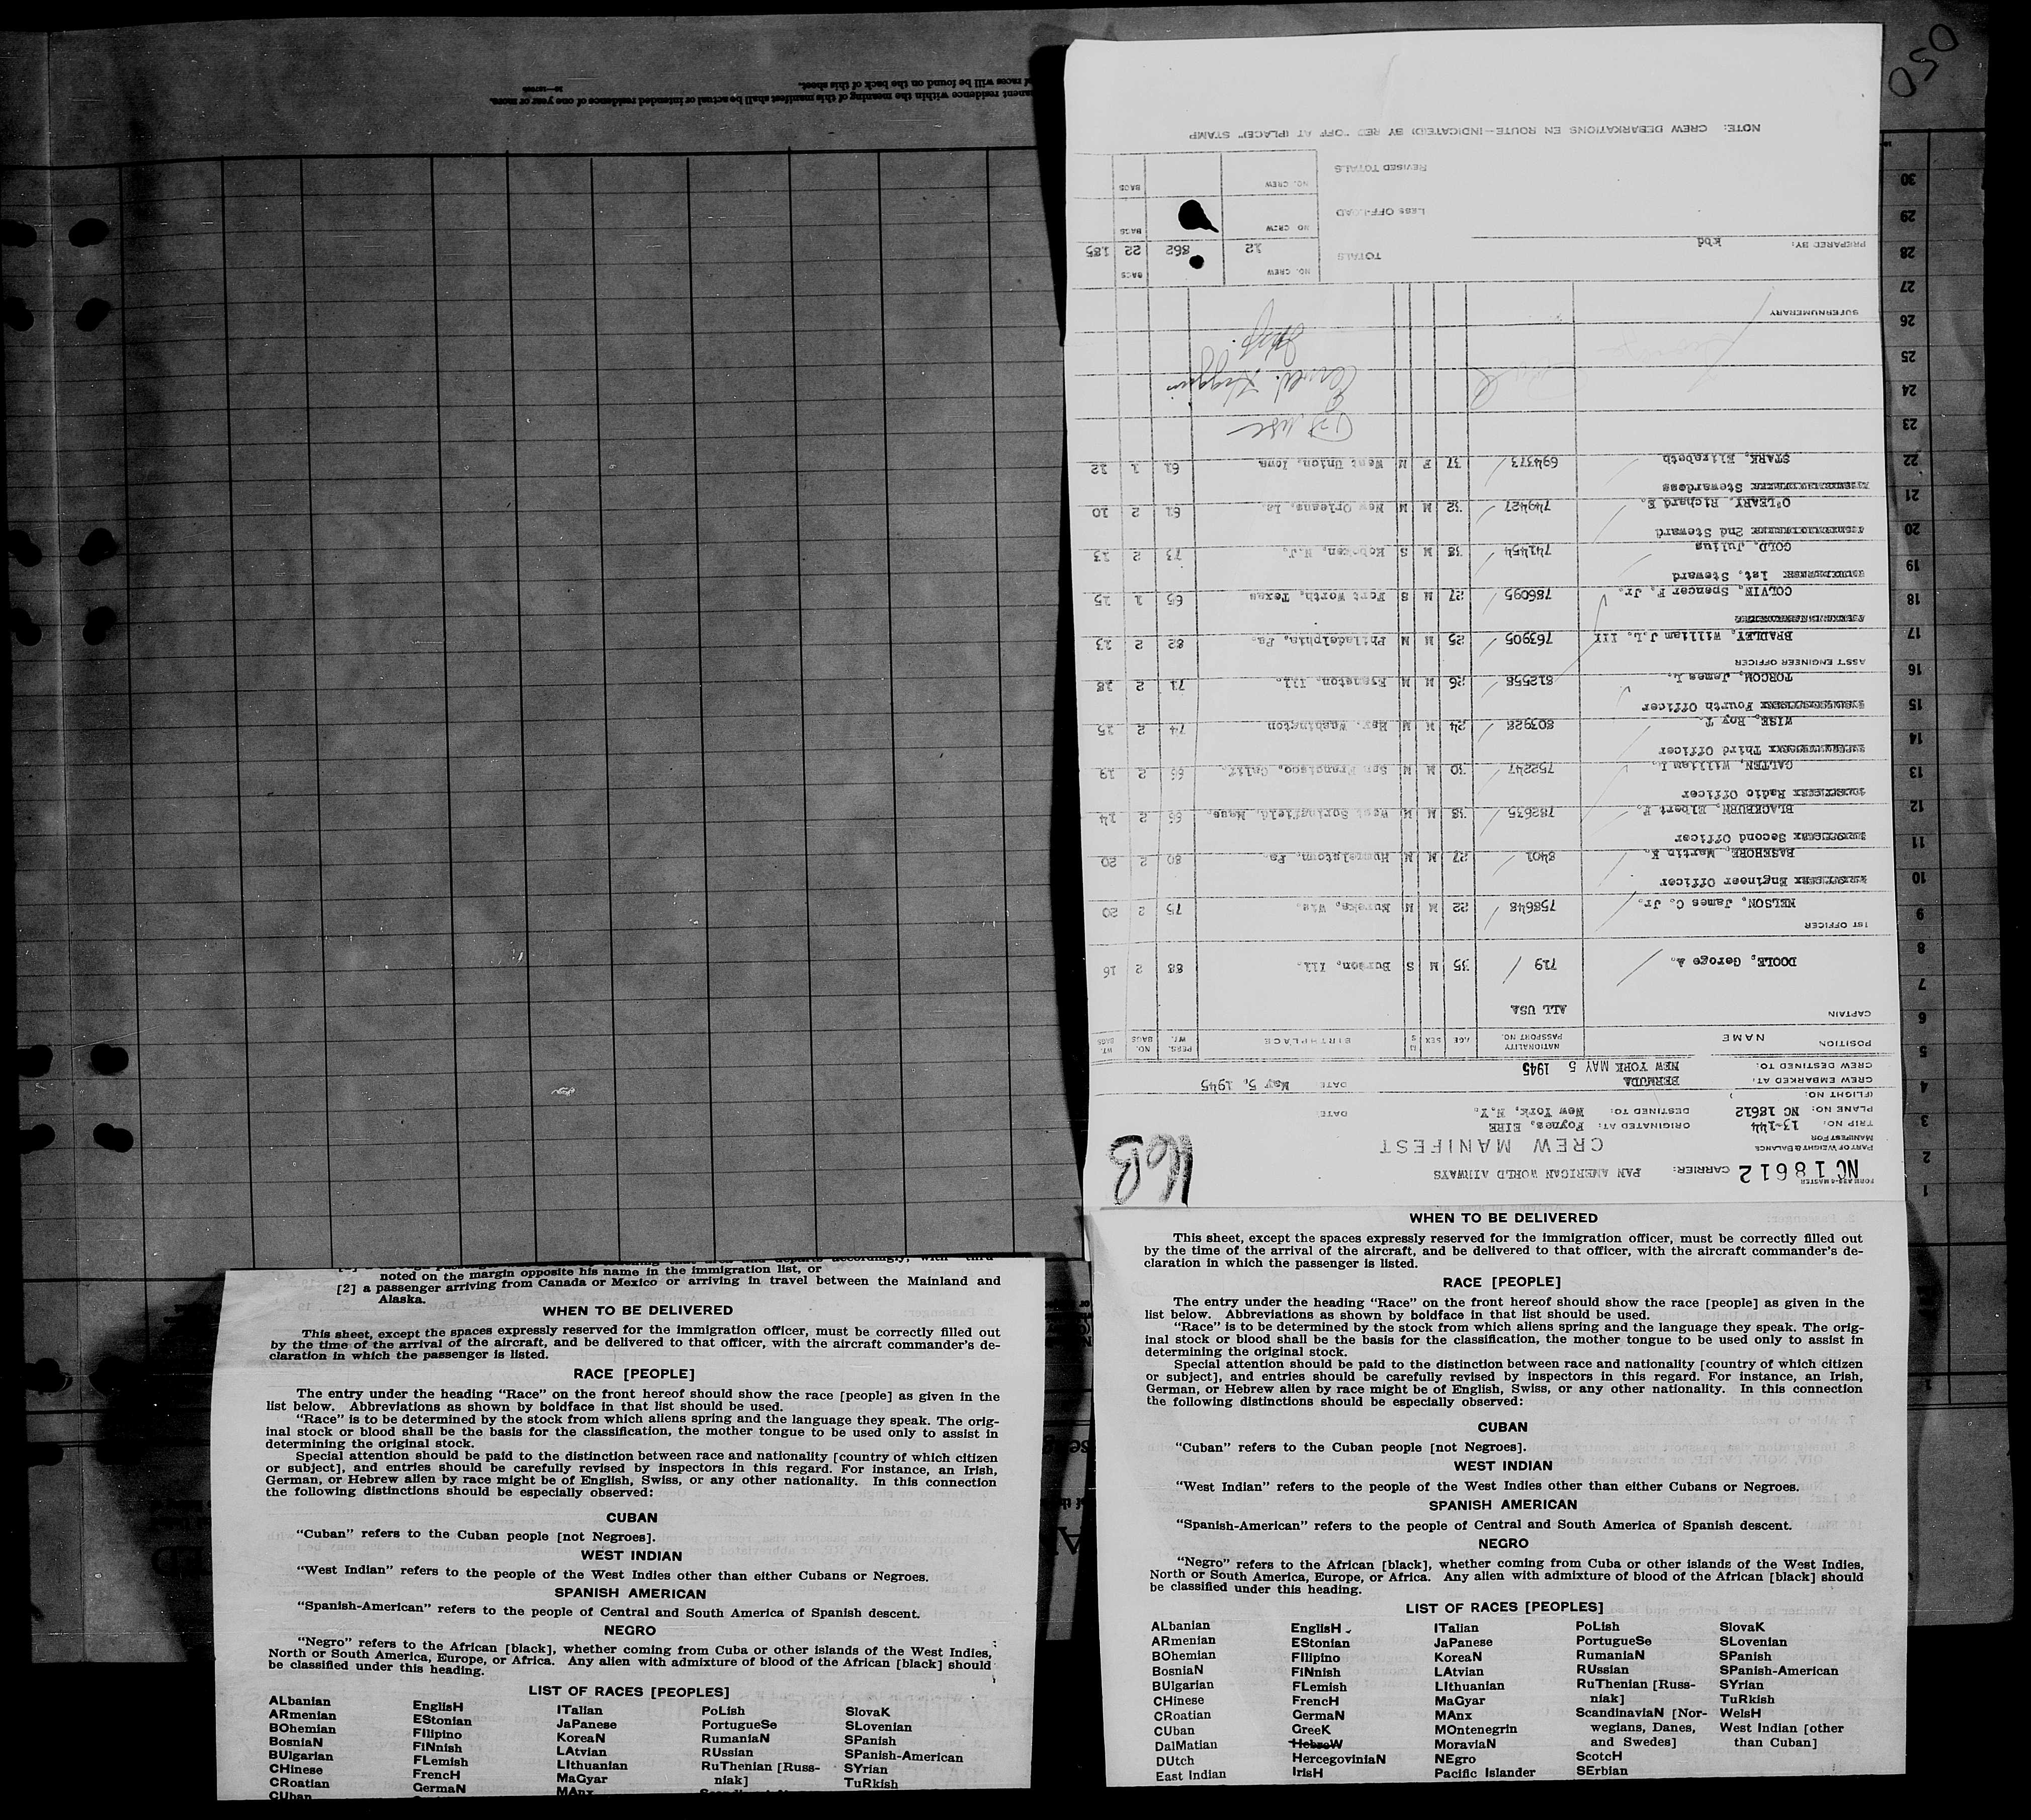 050
nanent residence within the meaning of this manifest shall be actual or intended residence of one year or more.
f races will be found on the back of this sheet.
FORM ABB-4 MASTER
NC 18612
CARRIER: PAN AMERICAN WORLD AIRWAYS
PART OF WEIGHT & BALANCE
MANIFEST FOR
CREW MANIFEST
16B
TRIP NO. 13-144 ORIGINATED AT: Foynes, EIRE
PLANE NO: NC 18612 DESTINED TO: New York, N.Y. DATE:
(FLIGHT NO. )
CREW EMBARKED AT: BERMUDA DATE May 5, 1945
CREW DESTINED TO: NEW YORK MAY 5 1945
POSITION NAME NATIONALITY PASSPORT NO. AGE SEX M S BIRTHPLACE PERS. WT. NO. BAGS WT. BAGS
CAPTAIN ALL USA
DOOLE, Geroge A. 719 35 M S Burson, Ill. 88 2 16
1ST OFFICER
NELSON, James C. Jr. 758648 22 M M Eureka, Wis. 75 2 20
Engineer Officer
BASEHORE, Martin K. 8401 27 M M Hummelstown, Pa. 80 2 20
Second Officer
BLACKBURN, Elbert F. 782635 38 M M West Springfield, Mass. 66 2 14
Radio Officer
CALTEN, William L. 752247 30 M M San Francisco, Calif. 66 2 19
Third Officer
WISE, Roy T. 803928 24 M M Hay, Washington 74 2 15
Fourth Officer
TORCOM, James L. 812558 26 M M Evanston, Ill. 71 2 18
ASS'T ENGINEER OFFICER
BRADLEY, William J.L. III 763905 25 M M Philadelphia, Pa. 82 2 13
COLVIN, Spencer F. Jr. 786095 27 M S Fort Worth, Texas 65 1 15
1st. Steward
GOLD, Julius 741454 38 M S Hoboken, N.J. 73 2 13
2nd Steward
O'LEARY, Richard E. 749427 32 M M New Orleans, La. 61 2 10
Stewardess
STARK, Elizabeth 694373 37 F M West Union, Iowa 61 1 12
SUPERNUMERARY
NO. CREW BAGS
PREPARED BY: kbd TOTALS 12 862 22 185
NO CREW BAGS
LESS OFF-LOAD
NO. CREW BAGS
REVISED TOTALS
NOTE: CREW DEBARKATIONS EN ROUTE—INDICATED BY RED "OFF AT (PLACE)" STAMP
1
2
3
4
5
6
7
8
9
10
11
12
13
14
15
16
17
18
19
20
21
22
23
24
25
26
27
28
29
30
noted on the margin opposite his name in the immigration list, or
[2] a passenger arriving from Canada or Mexico or arriving in travel between the Mainland and
Alaska.
WHEN TO BE DELIVERED
This sheet, except the spaces expressly reserved for the immigration officer, must be correctly filled out
by the time of the arrival of the aircraft, and be delivered to that officer, with the aircraft commander's de-
claration in which the passenger is listed.
RACE [PEOPLE]
The entry under the heading “Race” on the front hereof should show the race [people] as given in the
list below. Abbreviations as shown by boldface in that list should be used.
“Race” is to be determined by the stock from which aliens spring and the language they speak. The orig-
inal stock or blood shall be the basis for the classification, the mother tongue to be used only to assist in
determining the original stock.
Special attention should be paid to the distinction between race and nationality [country of which citizen
or subject], and entries should be carefully revised by inspectors in this regard. For instance, an Irish,
German, or Hebrew alien by race might be of English, Swiss, or any other nationality. In this connection
the following distinctions should be especially observed:
CUBAN
“Cuban” refers to the Cuban people [not Negroes].
WEST INDIAN
“West Indian” refers to the people of the West Indies other than either Cubans or Negroes.
SPANISH AMERICAN
“Spanish-American” refers to the people of Central and South America of Spanish descent.
NEGRO
“Negro” refers to the African [black], whether coming from Cuba or other islands of the West Indies,
North or South America, Europe, or Africa. Any alien with admixture of blood of the African [black] should
be classified under this heading.
LIST OF RACES [PEOPLES]
ALbanian
ARmenian
BOhemian
BosniaN
BUlgarian
CHinese
CRoatian
CUban
EnglisH
EStonian
FIlipino
FINnish
FLemish
FrencH
GermaN
ITalian
JaPanese
KoreaN
LAtvian
LIthuanian
MaGyar
MAnx
PoLish
PortugueSe
RumaniaN
RUssian
RuThenian [Russ-
niak]
SlovaK
SLovenian
SPanish
SPanish-American
SYrian
TuRkish
WHEN TO BE DELIVERED
This sheet, except the spaces expressly reserved for the immigration officer, must be correctly filled out
by the time of the arrival of the aircraft, and be delivered to that officer, with the aircraft commander's de-
claration in which the passenger is listed.
RACE [PEOPLE]
The entry under the heading “Race” on the front hereof should show the race [people] as given in the
list below. Abbreviations as shown by boldface in that list should be used.
“Race” is to be determined by the stock from which aliens spring and the language they speak. The orig-
inal stock or blood shall be the basis for the classification, the mother tongue to be used only to assist in
determining the original stock.
Special attention should be paid to the distinction between race and nationality [country of which citizen
or subject], and entries should be carefully revised by inspectors in this regard. For instance, an Irish,
German, or Hebrew alien by race might be of English, Swiss, or any other nationality. In this connection
the following distinctions should be especially observed:
CUBAN
“Cuban” refers to the Cuban people [not Negroes].
WEST INDIAN
“West Indian” refers to the people of the West Indies other than either Cubans or Negroes.
SPANISH AMERICAN
“Spanish-American” refers to the people of Central and South America of Spanish descent.
NEGRO
“Negro” refers to the African [black], whether coming from Cuba or other islands of the West Indies,
North or South America, Europe, or Africa. Any alien with admixture of blood of the African [black] should
be classified under this heading.
LIST OF RACES [PEOPLES]
ALbanian
ARmenian
BOhemian
BosniaN
BUlgarian
CHinese
CRoatian
CUban
DalMatian
DUtch
East Indian
EnglisH
EStonian
FIlipino
FINnish
FLemish
FrencH
GermaN
GreeK
HebreW
HercegoviniaN
IrisH
ITalian
JaPanese
KoreaN
LAtvian
LIthuanian
MaGyar
MAnx
MOntenegrin
MoraviaN
NEgro
Pacific Islander
PoLish
PortugueSe
RumaniaN
RUssian
RuThenian [Russ-
niak]
ScandinaviaN [Nor-
wegians, Danes,
and Swedes]
ScotcH
SErbian
SlovaK
SLovenian
SPanish
SPanish-American
SYrian
TuRkish
WelsH
West Indian [other
than Cuban]